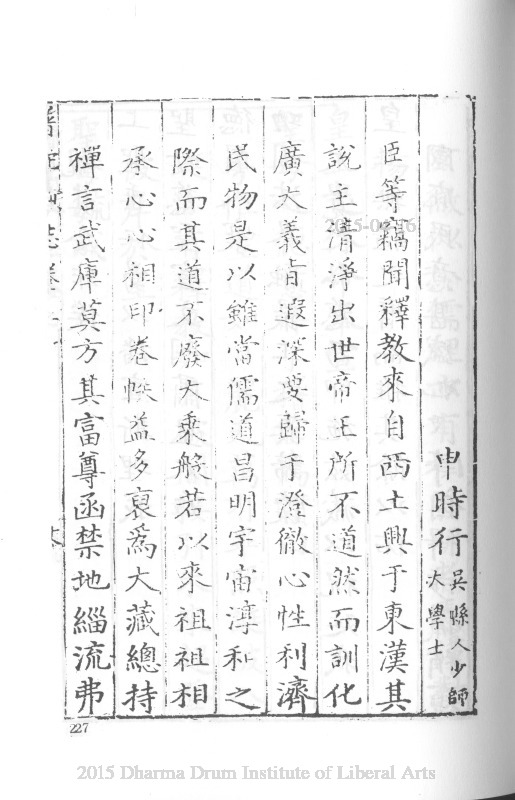 申時行 吳縣人少師
大學士
臣等竊聞釋教來自西土興于東漢其
說主清淨出世帝王所不道然而訓化
廣大義旨遐深要歸于澄徹心性利濟
民物是以雖當儒道昌明宇宙淳和之
際而其道不廢大乘般若以來祖祖相
承心心相印卷帙益多裒為大藏總持
禪言武庫莫方其富尊函禁地緇流弗
227
2015-04-16
2015 Dharma Drum Institute of Liberal Arts